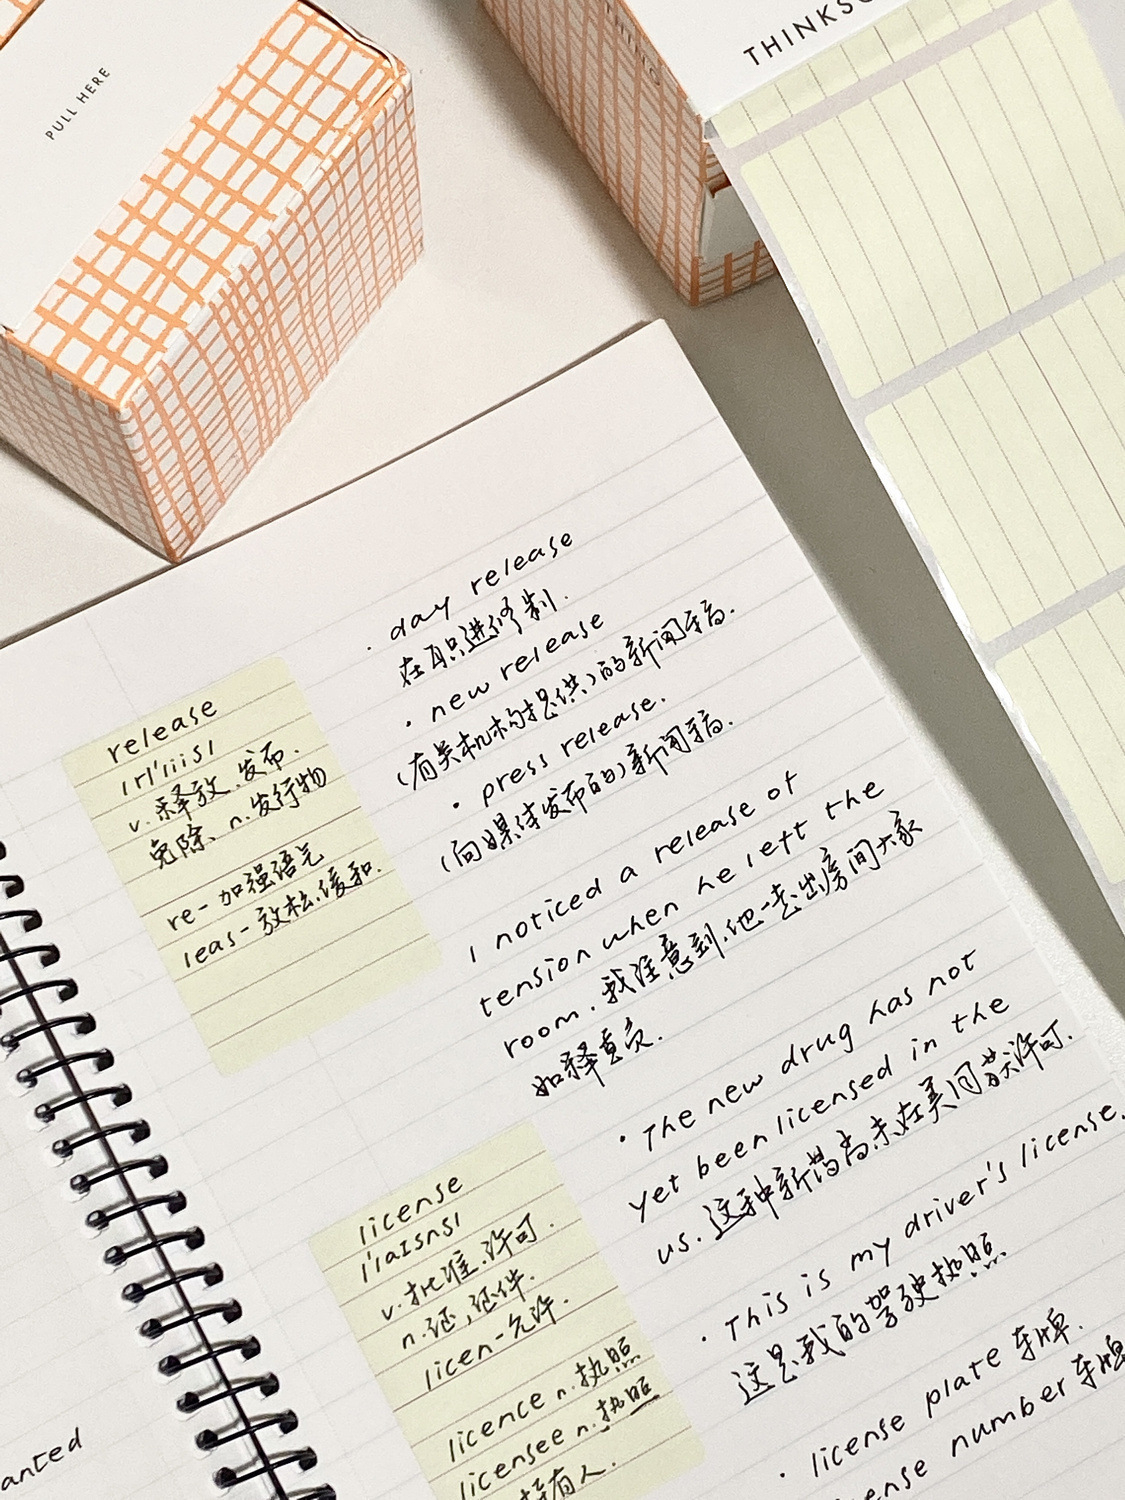 PULL HERE
THINKS
release
/rɪ'liːs/
v.释放.发布.
免除、n.发行物
re-加强语气
leas-放松.缓和.
· day release
在职进修制.
· new release
(有关机构提供)的新闻稿.
· press release.
(向媒体发布的)新闻稿.
I noticed a release of
tension when he left the
room. 我注意到.他一走出房间大家
如释重负.
· The new drug has not
yet been licensed in the
us. 这种新药尚未在美国获许可.
license
/'laɪsns/
v.批准.许可.
n.证,证件.
licen-允许.
licence n.执照
licensee n.执照
持有人.
· This is my driver's license.
这是我的驾驶执照
· license plate 车牌.
ense number 车牌
anted